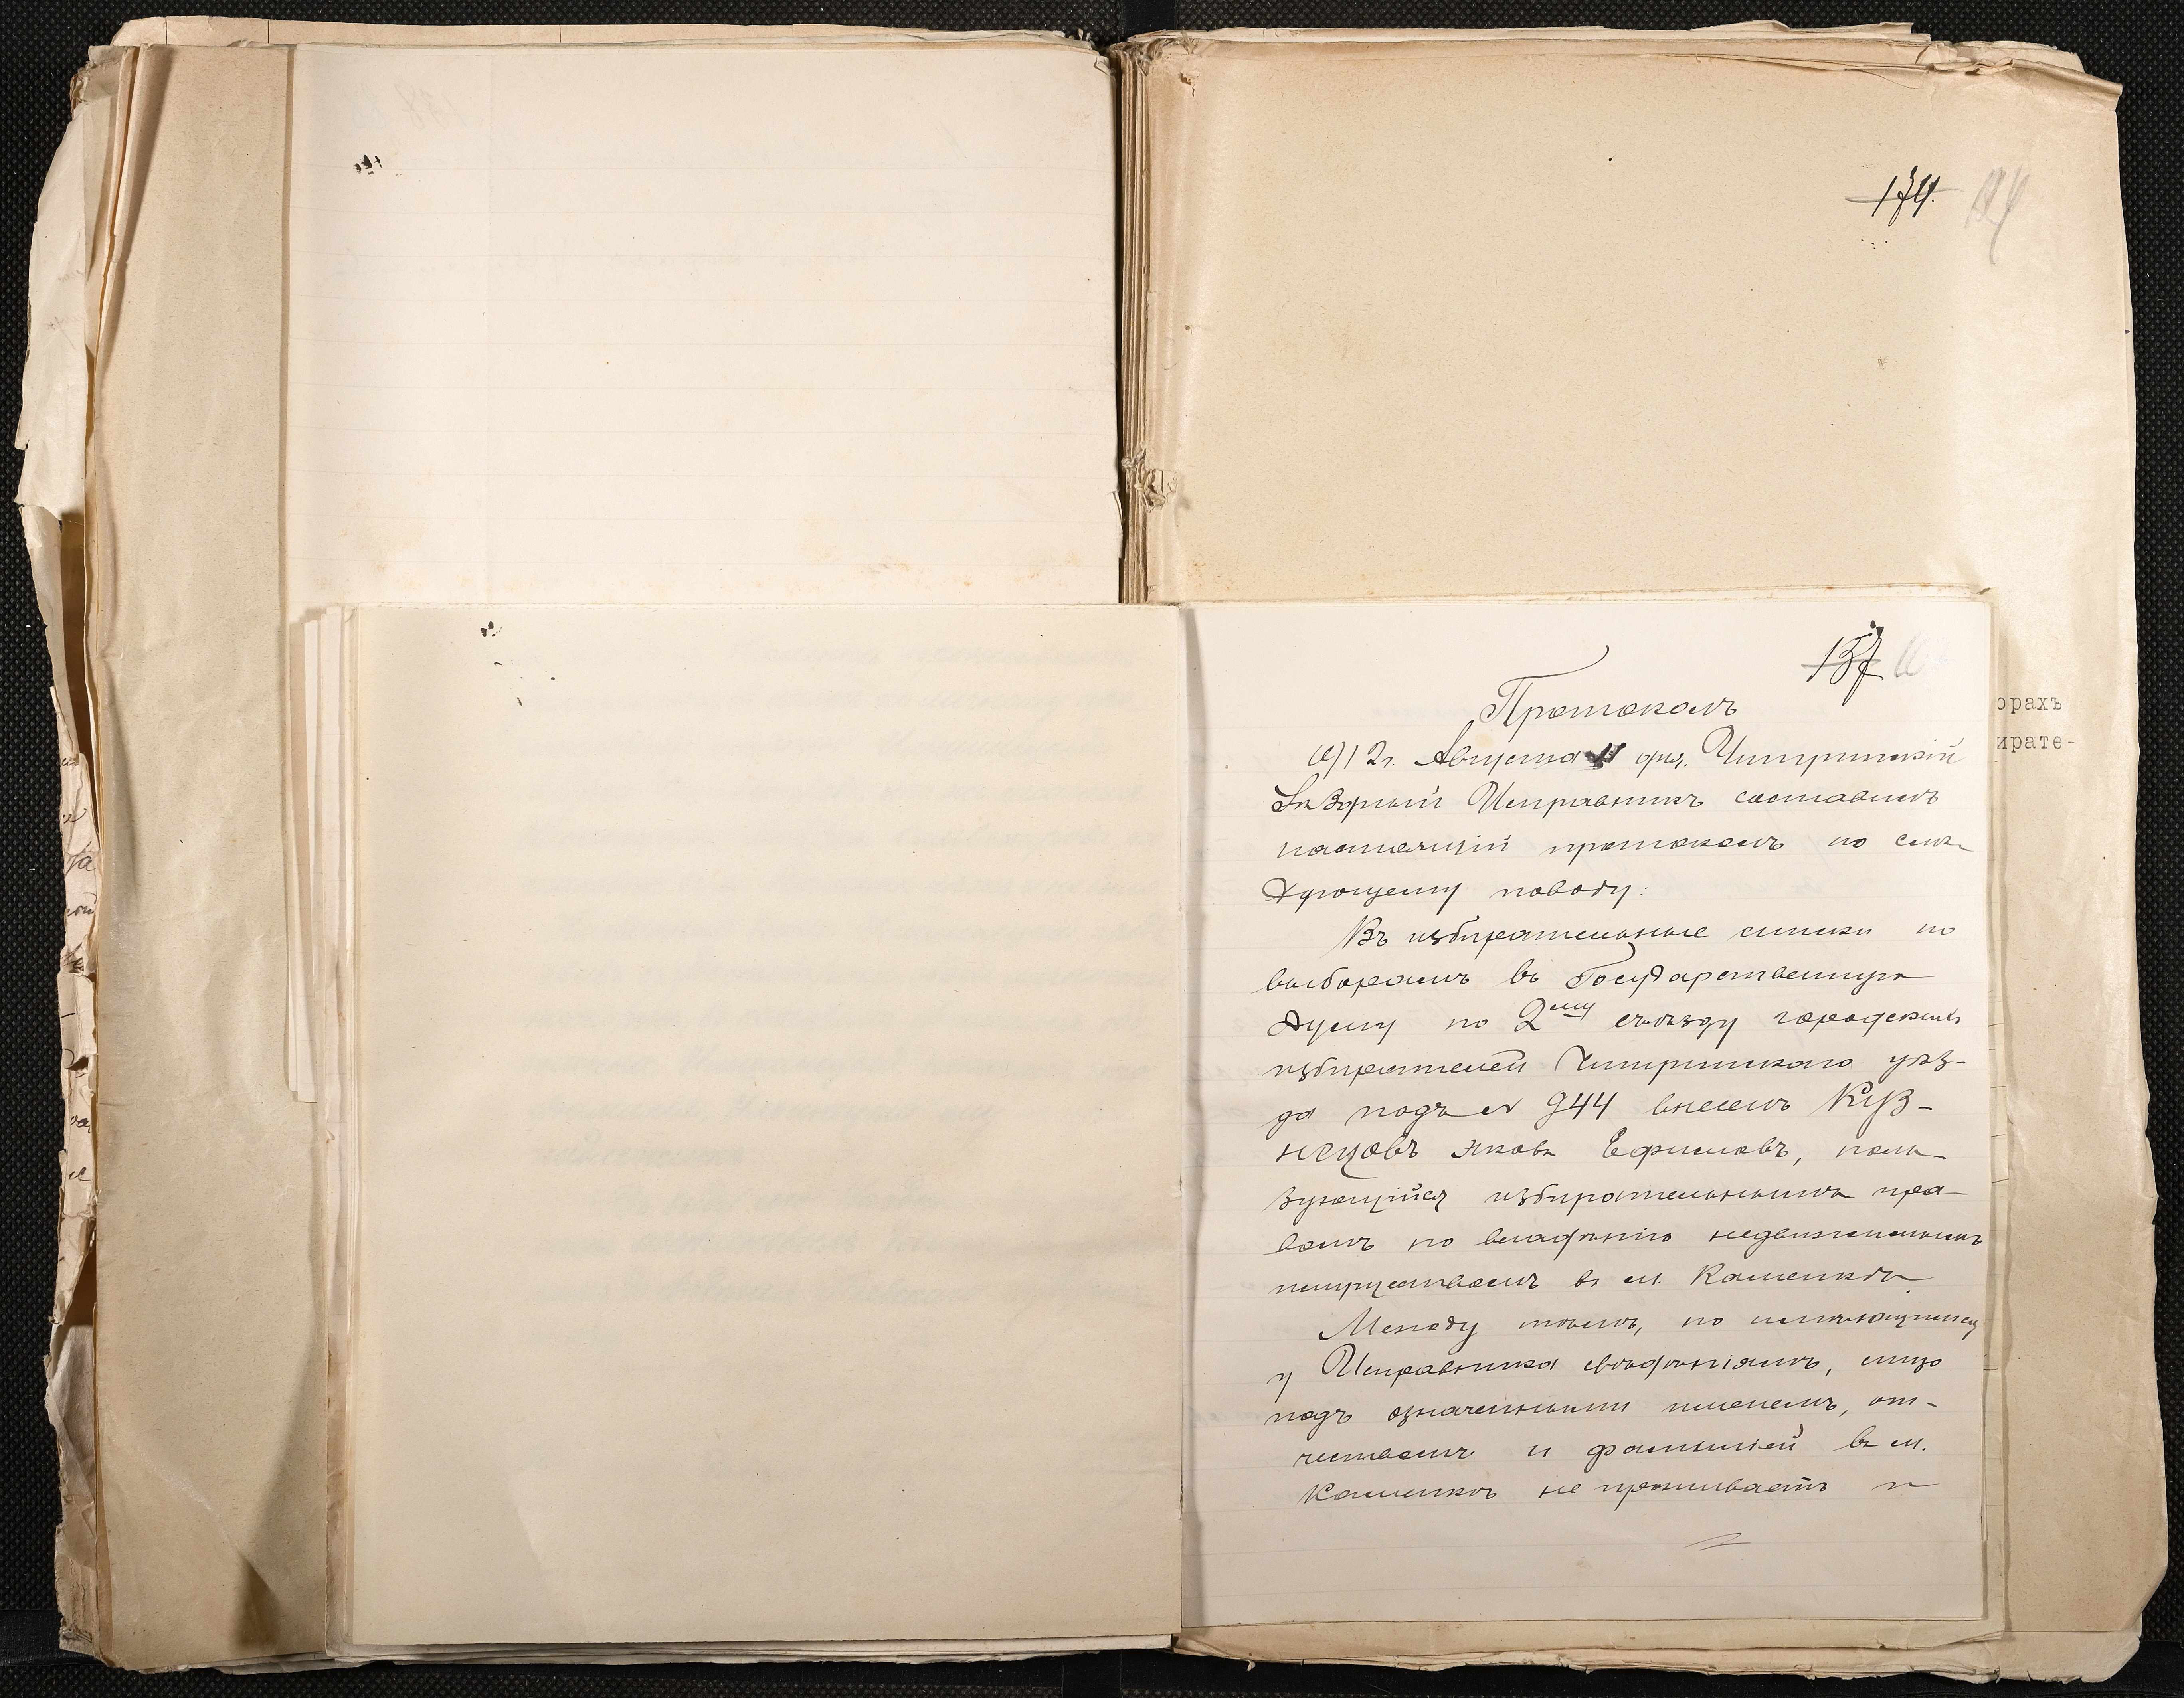 174.
137
Протоколъ
1912 г. Августа 11 дня. Чигиринскій
Уѣздный Исправникъ составилъ
настоящій протоколъ по слѣ-
дующему поводу:
Въ избирательные списки по
выборамъ въ Государственную
Думу по 2му съѣзду городскихъ
избирателей Чигиринскаго уѣз-
да подъ № 944 внесенъ Куз-
нецовъ Яковъ Ефимовъ, поль-
зующійся избирательнымъ пра-
вомъ по владѣнію недвижимымъ
имуществомъ въ м. Каменкѣ.
Между тѣмъ, по имѣющимся
у Исправника свѣдѣніямъ, лицо
подъ означеннымъ именемъ, от-
чествомъ и фамиліей въ м.
Каменкѣ не проживаетъ и
орахъ
ирате-